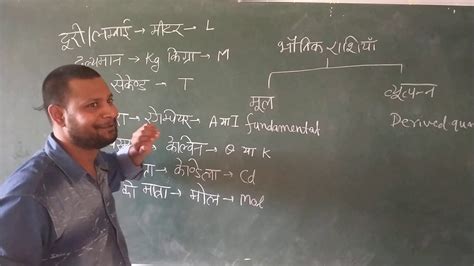 दूरी/लम्बाई → मीटर → L
द्रव्यमान → Kg किग्रा → M
सेकेण्ड → T
→ ऐम्पियर → A या I
→ केल्विन → θ या K
→ केण्डेला → Cd
की मात्रा → मोल → Mol
भौतिक राशियाँ
मूल
fundamental
व्युत्पन्न
Derived quan